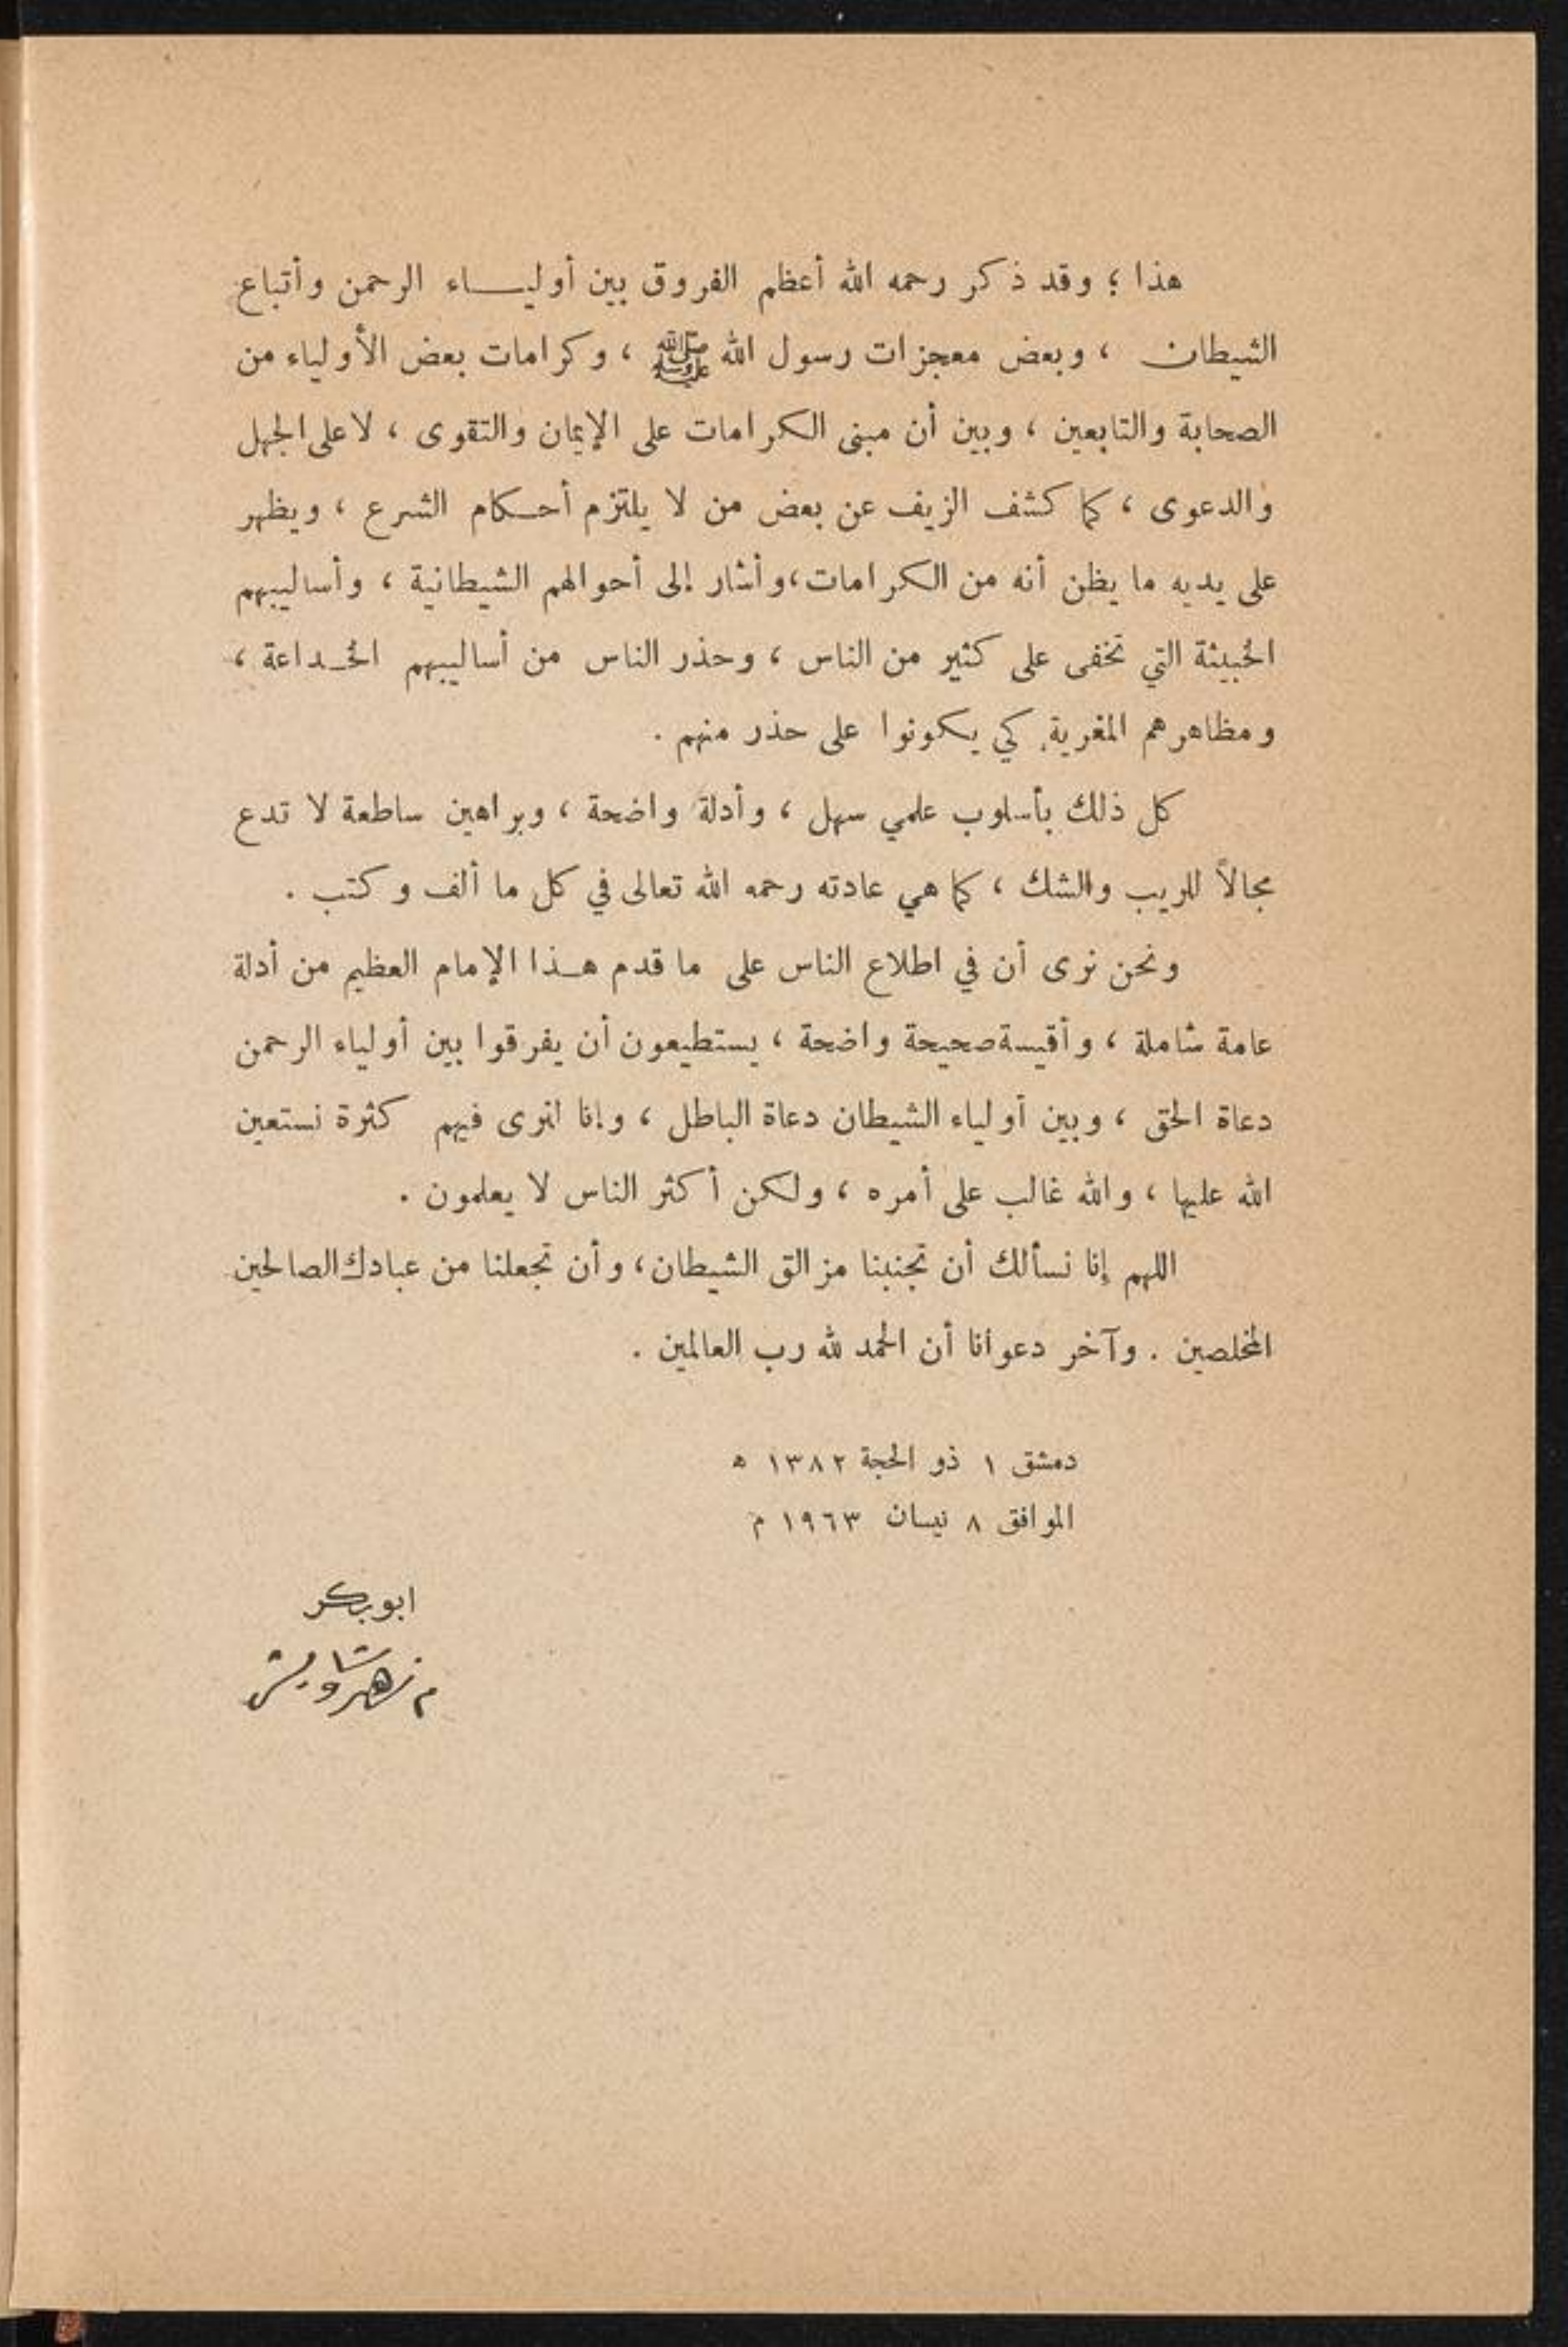 هذا ؛ وقد ذكر رحمه الله أعظم الفروق بين أوليـــاء الرحمن وأتباع
الشيطان ، وبعض معجزات رسول الله ﷺ ، وكرامات بعض الأولياء من
الصحابة والتابعين ، وبين أن مبنى الكرامات على الإيمان والتقوى ، لا على الجهل
والدعوى ، كما كشف الزيف عن بعض من لا يلتزم أحـكام الشرع ، ويظهر
على يديه ما يظن أنه من الكرامات ، وأشار إلى أحوالهم الشيطانية ، وأساليبهم
الخبيثة التي تخفى على كثير من الناس ، وحذر الناس من أساليبهم الخـداعة ،
ومظاهرهم المغرية كي يكونوا على حذر منهم .
كل ذلك بأسلوب علمي سهل ، وأدلة واضحة ، وبراهين ساطعة لا تدع
مجالاً للريب والشك ، كما هي عادته رحمه الله تعالى في كل ما ألف وكتب .
ونحن نرى أن في اطلاع الناس على ما قدم هـذا الإمام العظيم من أدلة
عامة شاملة ، وأقيسة صحيحة واضحة ، يستطيعون أن يفرقوا بين أولياء الرحمن
دعاة الحق ، وبين أولياء الشيطان دعاة الباطل ، وإنا لنرى فيهم كثرة نستعين
الله عليها ، والله غالب على أمره ، ولكن أكثر الناس لا يعلمون .
اللهم إنا نسألك أن تجنبنا مزالق الشيطان ، وأن تجعلنا من عبادك الصالحين
المخلصين . وآخر دعوانا أن الحمد لله رب العالمين .
دمشق ١ ذو الحجة ١٣٨٢ ه
الموافق ٨ نيسان ١٩٦٣ م
ابو بكر